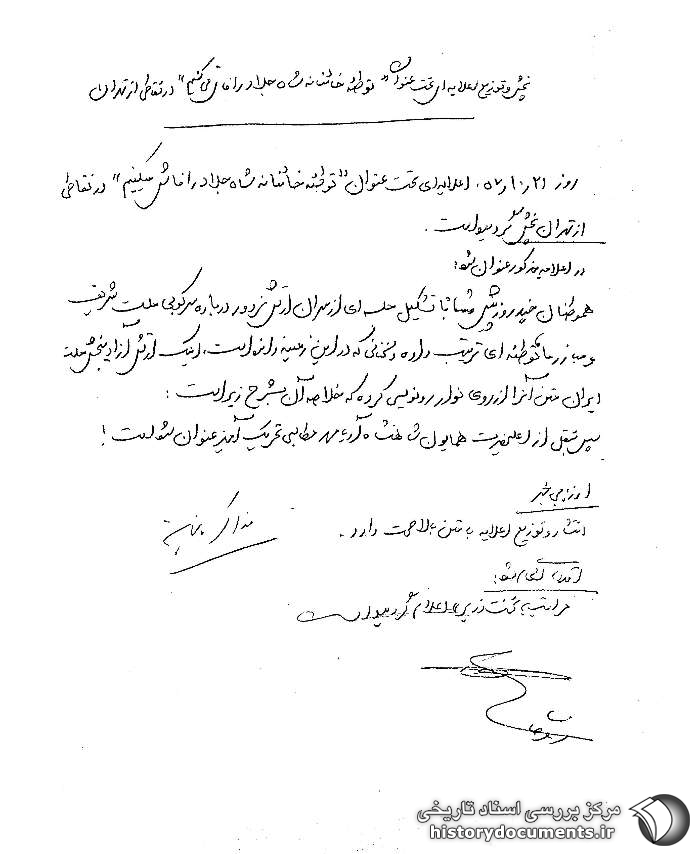 پخش و توزیع اعلامیه ای تحت عنوان " توطئه خائنانه شاه جلاد را فاش می کنیم " در نقاطی از تهران
روز ۲۱ ر۱۰ ر۵۷ . اعلامیه ای تحت عنوان " توطئه خائنانه شاه جلاد را فاش میکنیم " در نقاطی
از تهران پخش گردیده است .
در اعلامیه مذکور عنوان شده :
هموطنان چند روز پیش شاه با تشکیل جلسه ای از سران ارتش مزدور درباره سرکوبی ملت شریف
و مبارز ما توطئه ای ترتیب داده و سخنانی که در این زمینه رانده است ، اینک ارتش آزادیبخش ملت
ایران متن آنرا از روی نوار رونویسی کرده که خلاصه آن بشرح زیر است :
سپس بنقل از اعلیحضرت همایون شاهنشاه آریامهر مطالبی تحریک آمیز عنوان شده است !
ارزیابی خبر
انتشار و توزیع اعلامیه با متن بالا صحت دارد .
اقدامات انجام شده :
مراتب به نخست وزیری اعلام گردیده است
مرکز بررسی اسناد تاریخی
historydocuments.ir